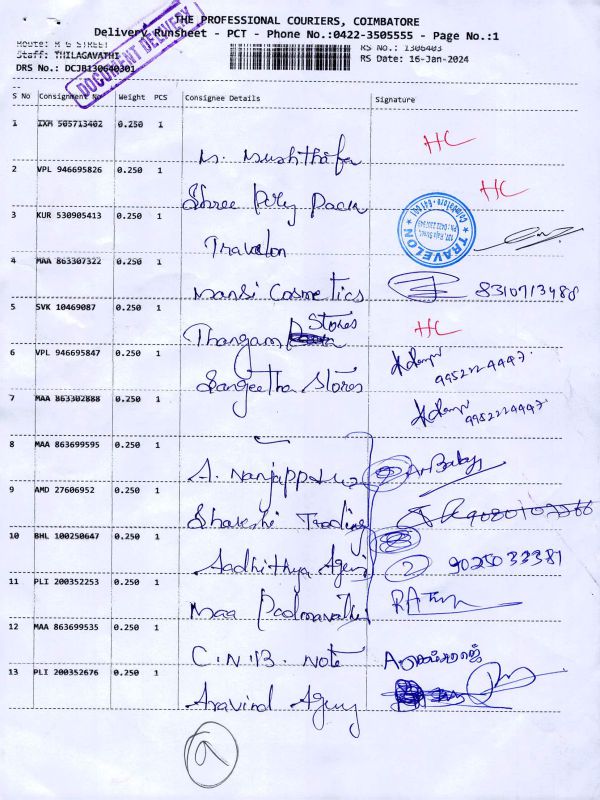 THE PROFESSIONAL COURIERS, COIMBATORE
Delivery Runsheet - PCT - Phone No.:0422-3505555 - Page No.:1
Route: R G STREET RS No.: 1306403
Staff: THILAGAVATHI RS Date: 16-Jan-2024
DRS No.: DCJB130640301
DOCUMENT DELIVERY
S No Consignment No Weight PCS Consignee Details Signature
1 IXM 505713402 0.250 1
M. Mushthafa HC
2 VPL 946695826 0.250 1
Shree Poly Pack HC
3 KUR 530905413 0.250 1
Travelon
TRAVELON
137, Raja Street,
Coimbatore - 641 001
4 MAA 863307322 0.250 1
Mansi Cosmetics 8310713488
5 SVK 10469087 0.250 1
Thangam Stores HC
6 VPL 946695847 0.250 1
Sangeetha Stores 9952224997
7 MAA 863302888 0.250 1
9952224997
8 MAA 863699595 0.250 1
A. Nanjappa
9 AMD 27606952 0.250 1
Shakthi Trading
10 BHL 100250647 0.250 1
Aadhithya Agenj 2 9025033381
11 PLI 200352253 0.250 1
Maa Padmavathi
12 MAA 863699535 0.250 1
C.N.B. Note
13 PLI 200352676 0.250 1
Aravind Agenj
a